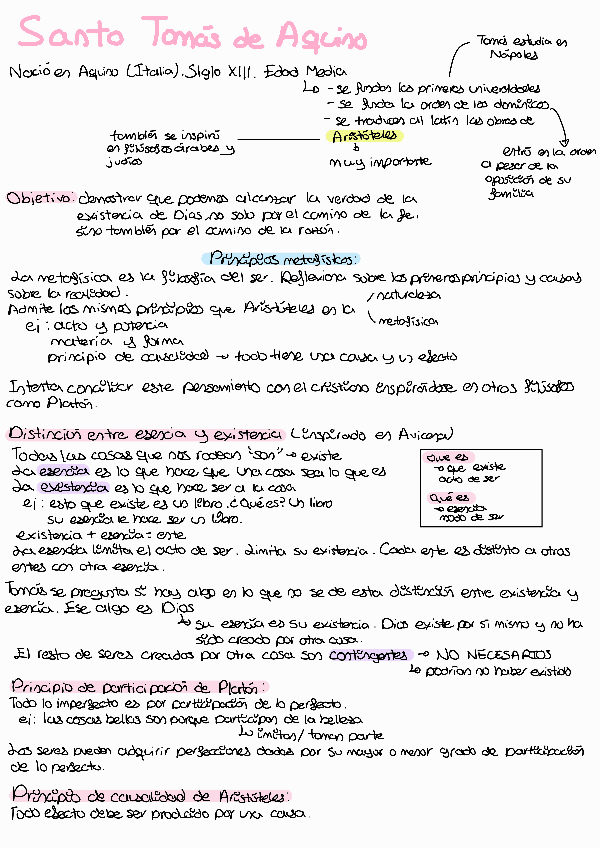 Santo Tomás de Aquino
Tomás estudia en
Nápoles
Nació en Aquino (Italia). Siglo XIII. Edad Media
↳ - se fundan las primeras universidades
- se funda la orden de los dominicos
- se traducen al latín las obras de
Aristóteles
muy importante
también se inspiró
en filósofos árabes y
judíos
entró en la orden
a pesar de la
oposición de su
familia
Objetivo: demostrar que podemos alcanzar la verdad de la
existencia de Dios no solo por el camino de la fe,
sino también por el camino de la razón.
Principios metafísicos:
La metafísica es la filosofía del ser. Reflexiona sobre los primeros principios y causas
sobre la realidad.
Admite los mismos principios que Aristóteles en la
naturaleza
metafísica
ej: acto y potencia
materia y forma
principio de causalidad → todo tiene una causa y un efecto
Intenta conciliar este pensamiento con el cristiano inspirándose en otros filósofos
como Platón.
Distinción entre esencia y existencia (inspirado en Avicena)
Todas las cosas que nos rodean "son" → existe
La esencia es lo que hace que una cosa sea lo que es
La existencia es lo que hace ser a la cosa
ej: esto que existe es un libro. ¿Qué es? Un libro
su esencia le hace ser un libro.
existencia + esencia = ente
Que es
→ que existe
acto de ser
Qué es
→ esencia
modo de ser
La esencia limita el acto de ser. Limita su existencia. Cada ente es distinto a otros
entes con otra esencia.
Tomás se pregunta si hay algo en lo que no se de esta distinción entre existencia y
esencia. Ese algo es Dios
↳ su esencia es su existencia. Dios existe por si mismo y no ha
sido creado por otra cosa.
El resto de seres creados por otra cosa son contingentes → NO NECESARIOS
↳ podrían no haber existido
Principio de participación de Platón:
Todo lo imperfecto es por participación de lo perfecto.
ej: las cosas bellas son porque participan de la belleza
↳ imitan/ toman parte
Los seres pueden adquirir perfecciones dadas por su mayor o menor grado de participación
de lo perfecto.
Principio de causalidad de Aristóteles:
Todo efecto debe ser producido por una causa.